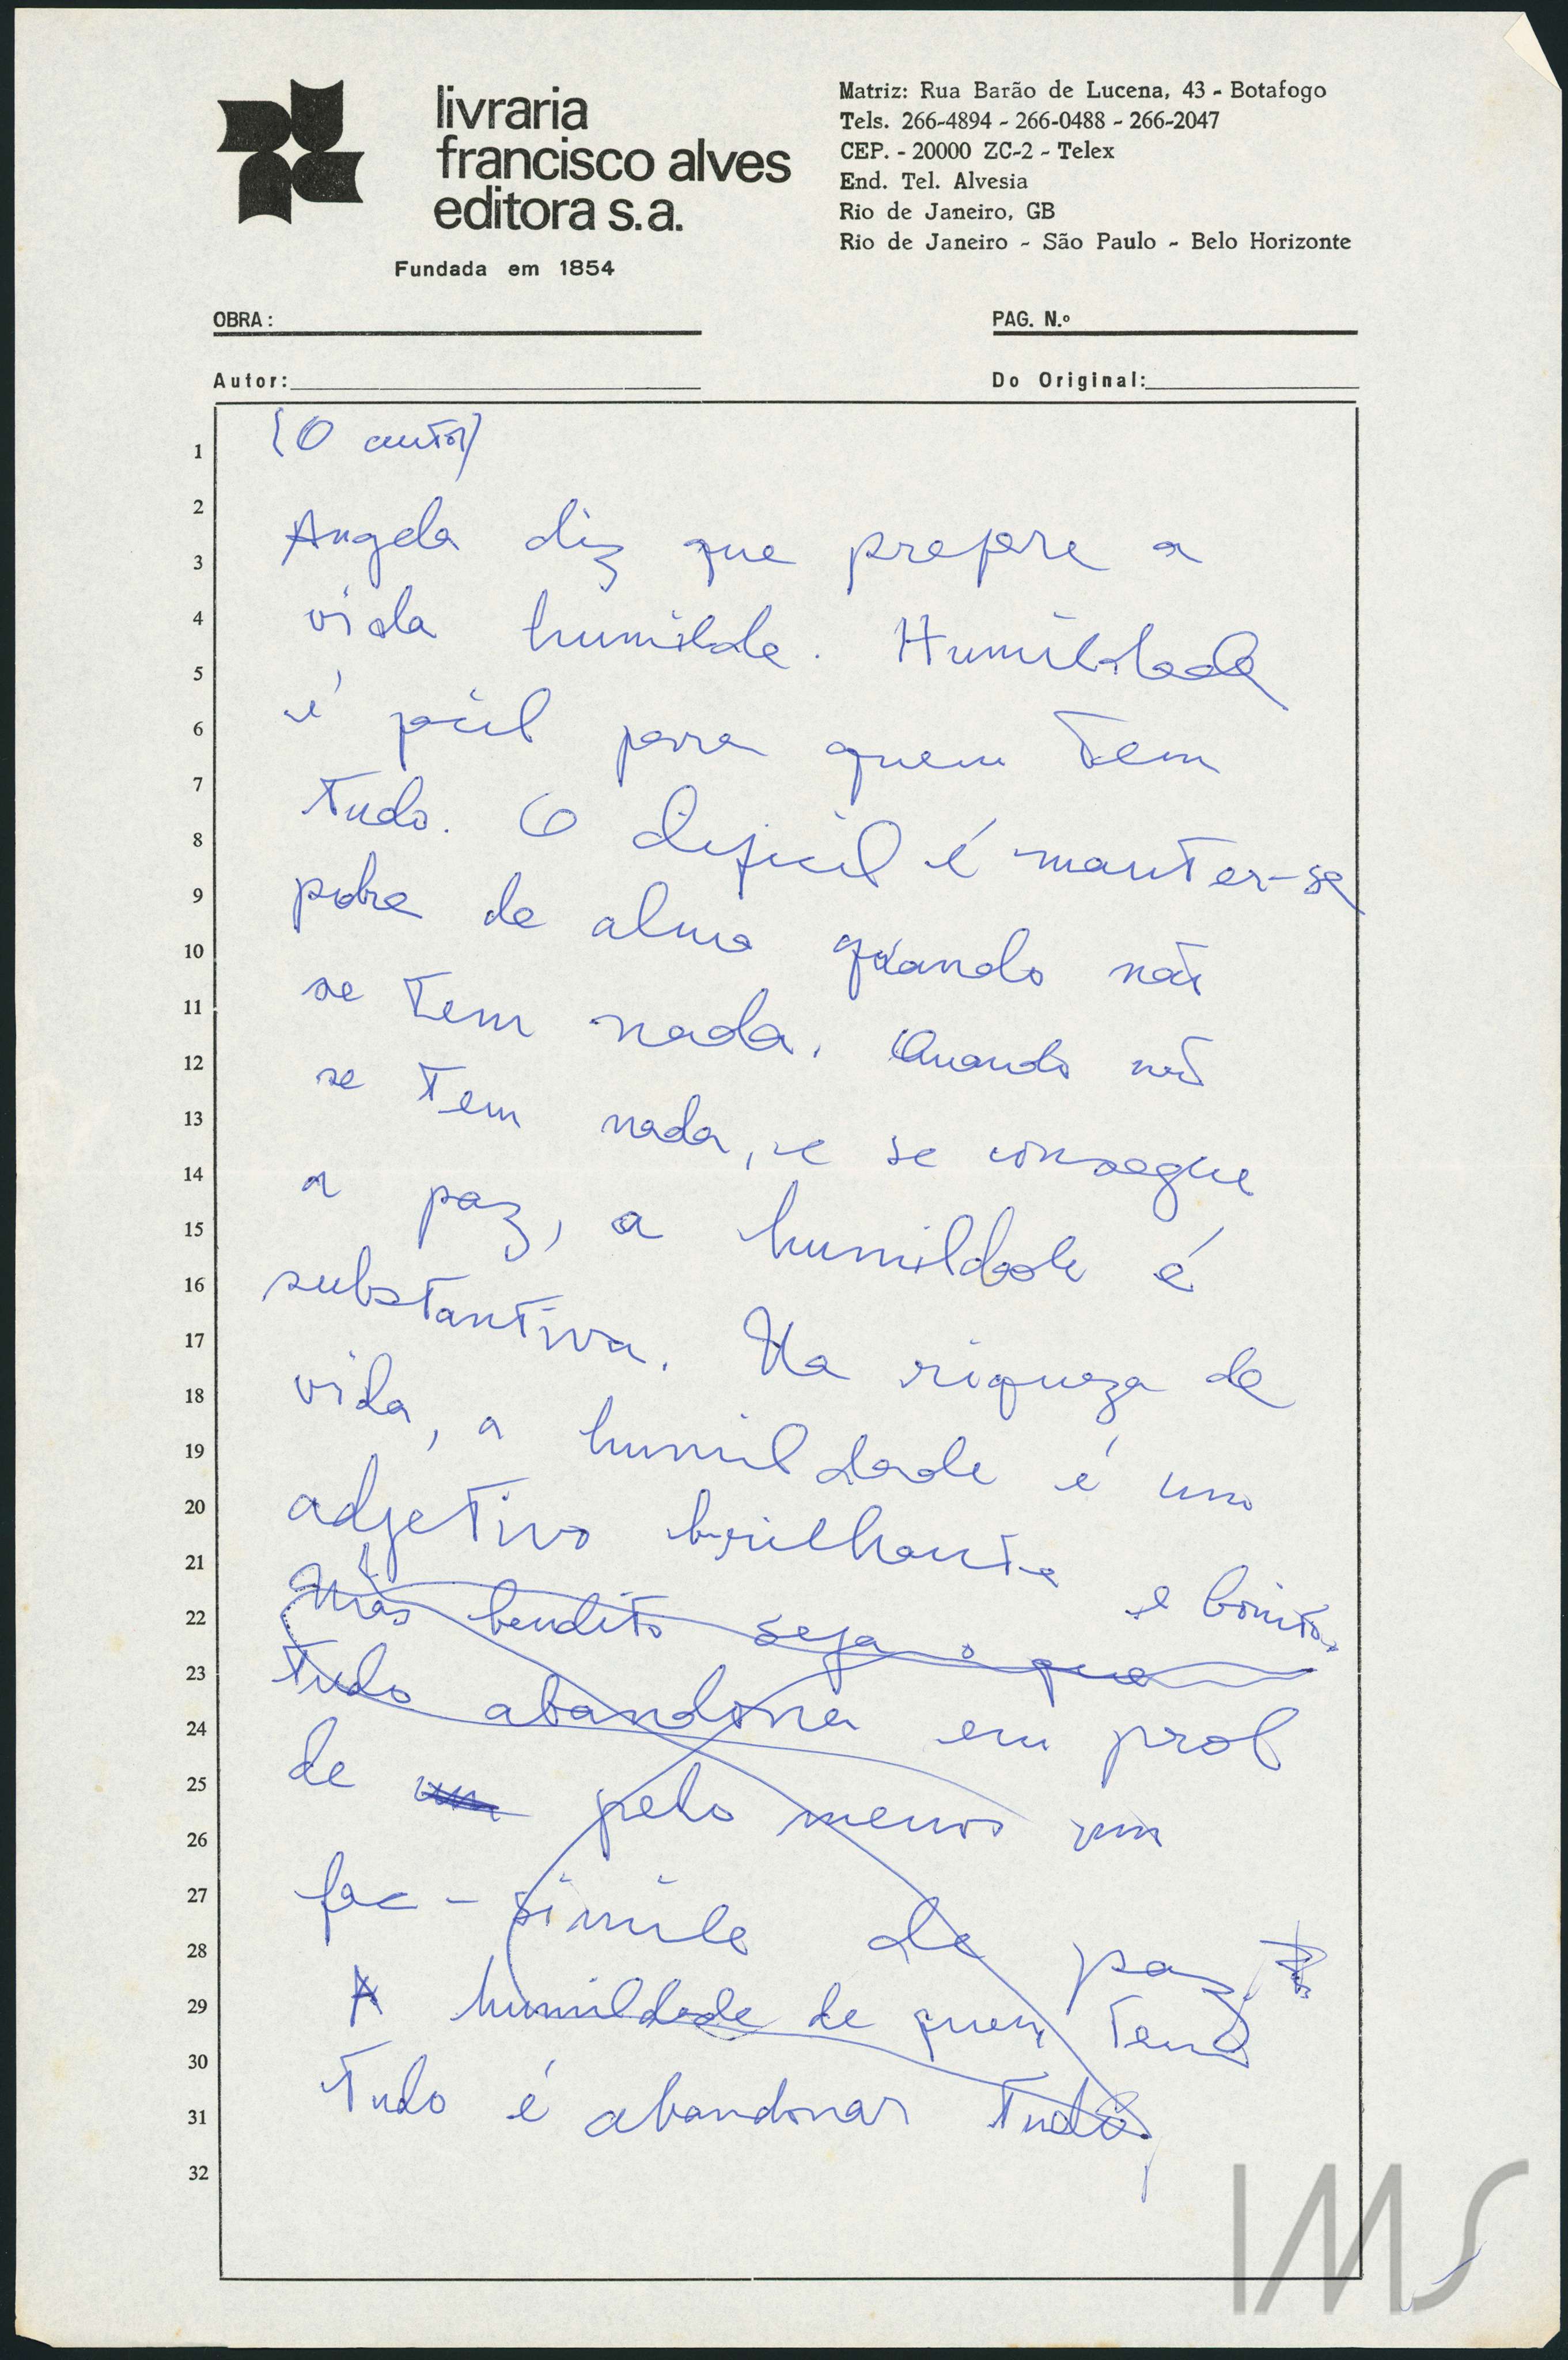 livraria
francisco alves
editora s.a.
Fundada em 1854
Matriz: Rua Barão de Lucena, 43 - Botafogo
Tels. 266-4894 - 266-0488 - 266-2047
CEP. - 20000 ZC-2 - Telex
End. Tel. Alvesia
Rio de Janeiro, GB
Rio de Janeiro - São Paulo - Belo Horizonte
OBRA:
PAG. N.º
Autor:
Do Original:
1
2
3
4
5
6
7
8
9
10
11
12
13
14
15
16
17
18
19
20
21
22
23
24
25
26
27
28
29
30
31
32
(O autor)
Angela diz que prefere a
vida humilde. Humildade
é fácil para quem tem
tudo. O dificil é manter-se
pobre de alma quando não
se tem nada. Quando não
se tem nada, e se consegue
a paz, a humildade é
substantiva. Na riqueza de
vida, a humildade é um
adjetivo brilhante e bonito.
Mas bendito seja o que
tudo abandona em prol
de um pelo menos um
fac-simile de paz.
A humildade de quem tem
tudo é abandonar tudo.
IMS